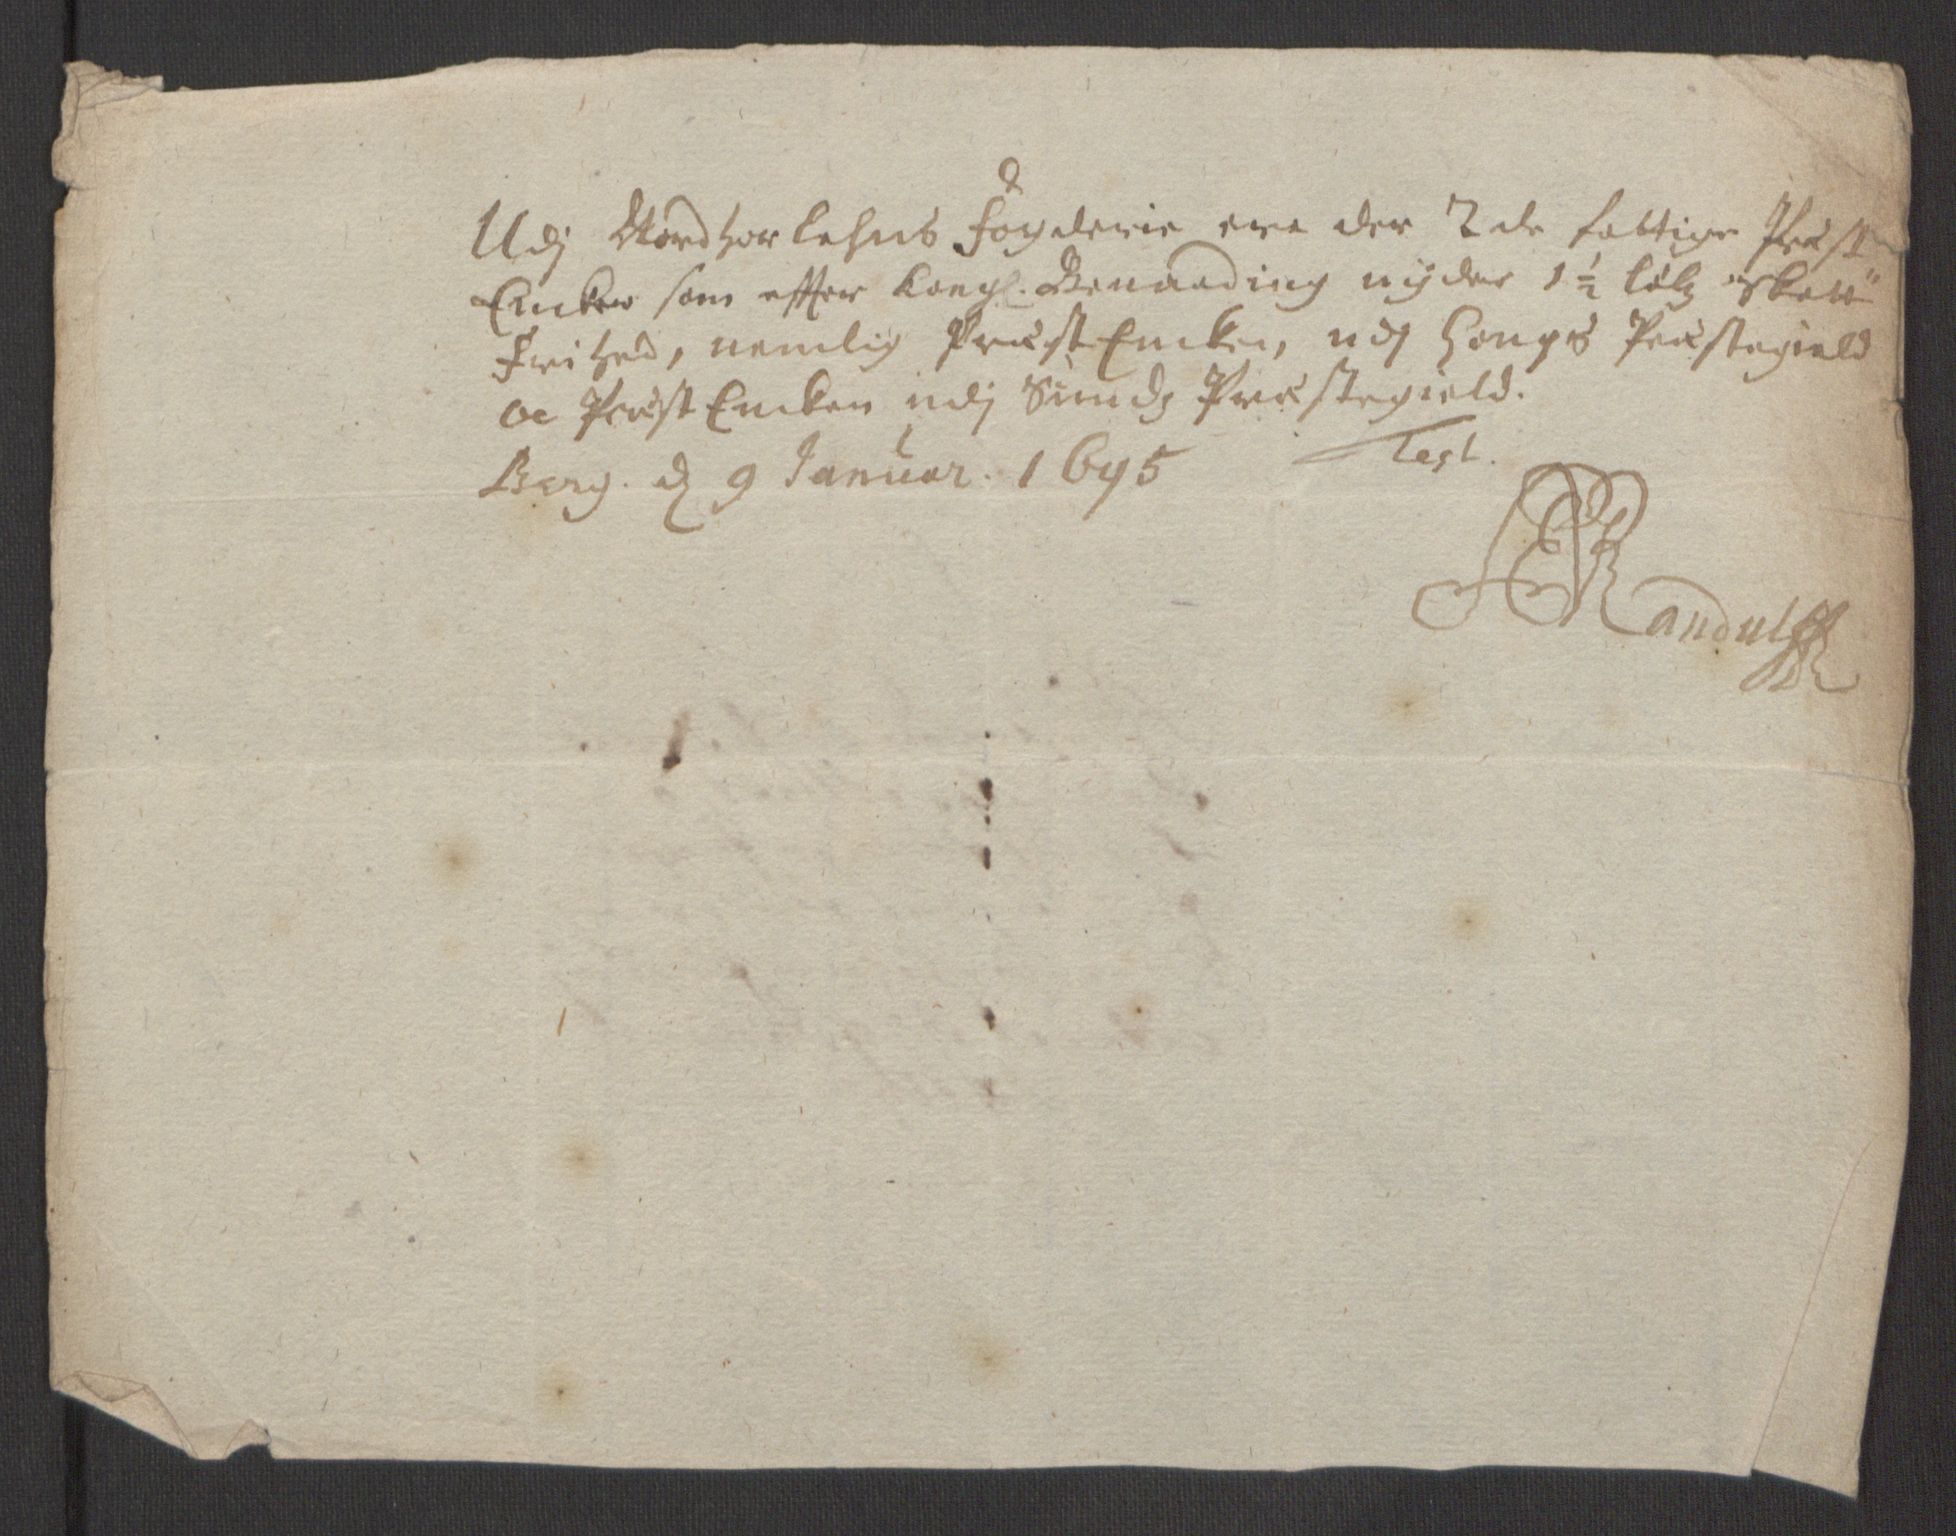 Udj Nordhorlehns Fogderie ere der 2de fattige Præst
Encker som effter Kongl. Benaading nÿder 1 ½ lølg Skatte
Frihed, nemlig Præst Encken, udj Hougs Præstegield
oc Præst Encken udj Sunds Præstegield.
Berg. d 9 Januar. 1695 Test.
Randulff